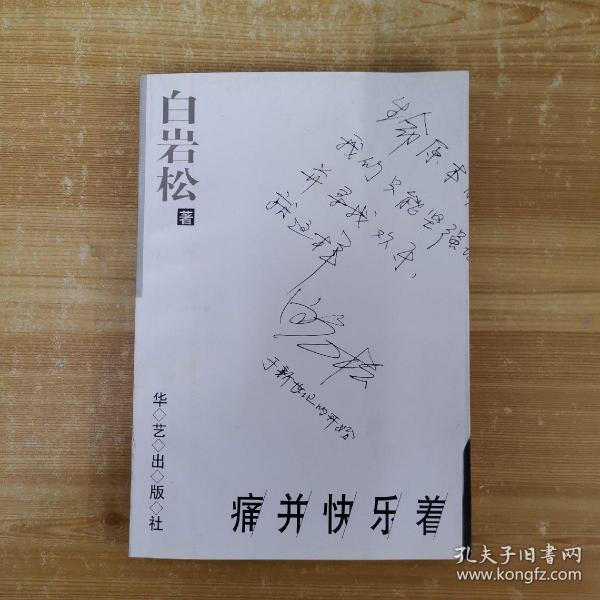 白岩松
著
生命原本
我们只能坚强
并寻找欢乐,
就这样
白岩松
于新世纪的开始
华◇艺◇出◇版◇社
痛并快乐着
孔夫子旧书网
www.kongfz.com